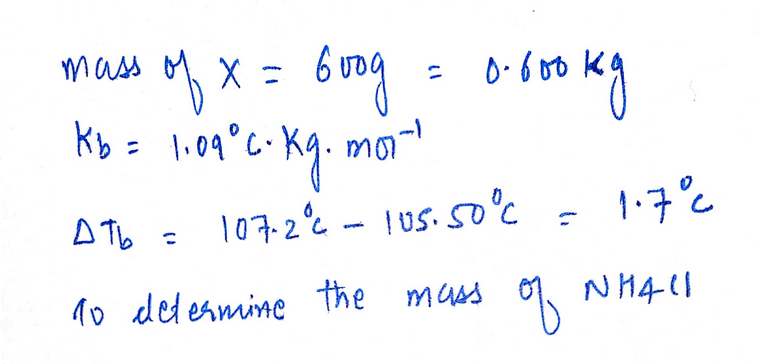 mass of x = 600g = 0.600 kg
Kb = 1.09°C. Kg. mol⁻¹
ΔTb = 107.2°C - 105.50°C = 1.7°C
To determine the mass of NH4Cl